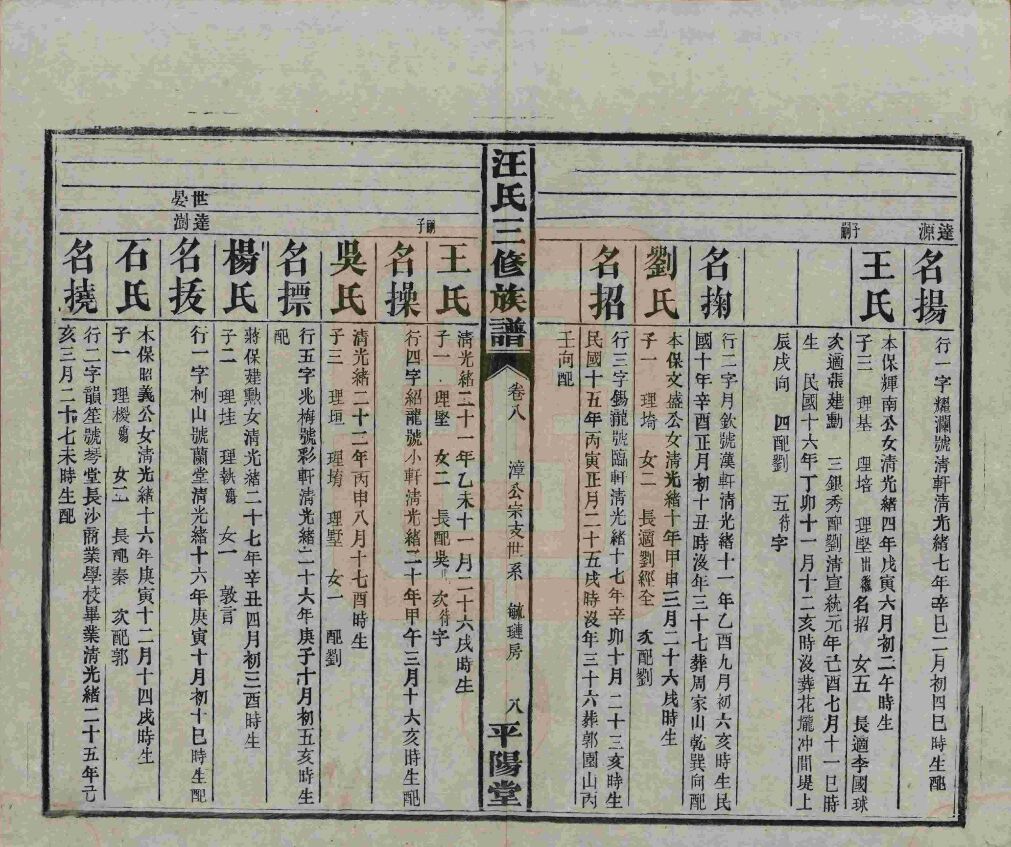 達源
名揚
行一字耀瀾號淸軒淸光緒七年辛巳二月初四巳時生配
子嗣
王氏
本保輝南公女淸光緒四年戊寅六月初二午時生
子三 理基 理培 理堅出繼名招 女五 長適李國球
次適張建勳 三銀秀配劉淸宣統元年己酉七月十一巳時
生 民國十六年丁卯十一月十二亥時沒葬花壠冲閒堤上
辰戌向 四配劉 五待字
名掬
行二字月欽號漢軒淸光緒十一年乙酉九月初六亥時生民
國十年辛酉正月初十丑時沒年三十七葬周家山乾巽向配
劉氏
本保文盛公女淸光緒十年甲申三月二十六戌時生
子一 理埼 女二 長適劉經全 次配劉
名招
行三字錫龍號臨軒淸光緒十七年辛卯十月二十三亥時生
民國十五年丙寅正月二十五戌時沒年三十六葬郭園山丙
壬向配
汪氏三修族譜
卷八 漳公宗支世系 毓璉房 八
平陽堂
嗣子
王氏
淸光緒二十一年乙未十一月二十六戌時生
子一 理堅 女二 長配吳 次待字
名操
行四字紹龍號小軒淸光緒二十年甲午三月十六亥時生配
吳氏
淸光緒二十二年丙申八月十七酉時生
子三 理垣 理堉 理墅 女一 配劉
名摽
行五字兆梅號彩軒淸光緒二十六年庚子十月初五亥時生
配
楊氏
蔣保建勲女淸光緒二十七年辛丑四月初三酉時生
子二 理珪 理執殤 女一 敦言
世晏
達澍
名㧞
行一字柯山號蘭堂淸光緒十六年庚寅十月初十巳時生配
石氏
本保昭義公女淸光緒十六年庚寅十二月十四戌時生
子一 理櫻殤 女二 長配秦 次配郭
名撓
行二字韻笙號琴堂長沙商業學校畢業淸光緒二十五年己
亥三月二十七未時生配